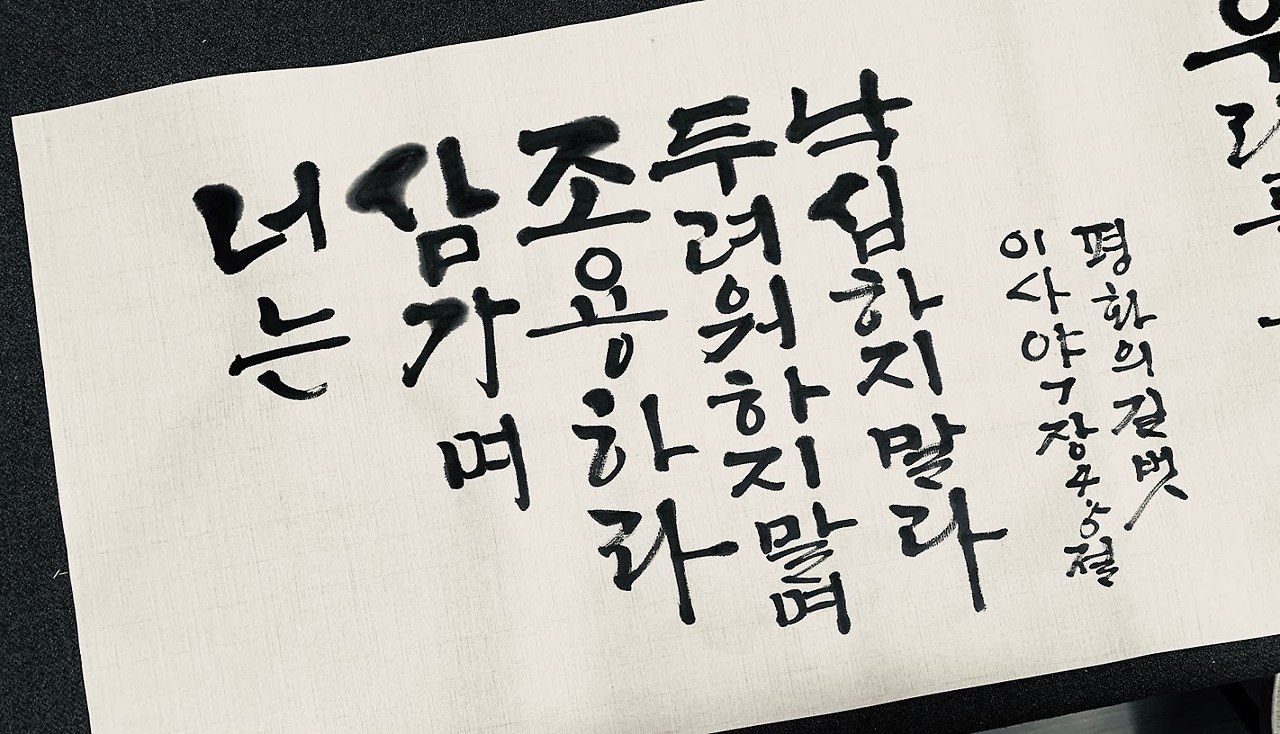 너는
삼가며
조용하라
두려워하지말며
낙심하지말라
이사야 7장 4 절
평화의 길벗